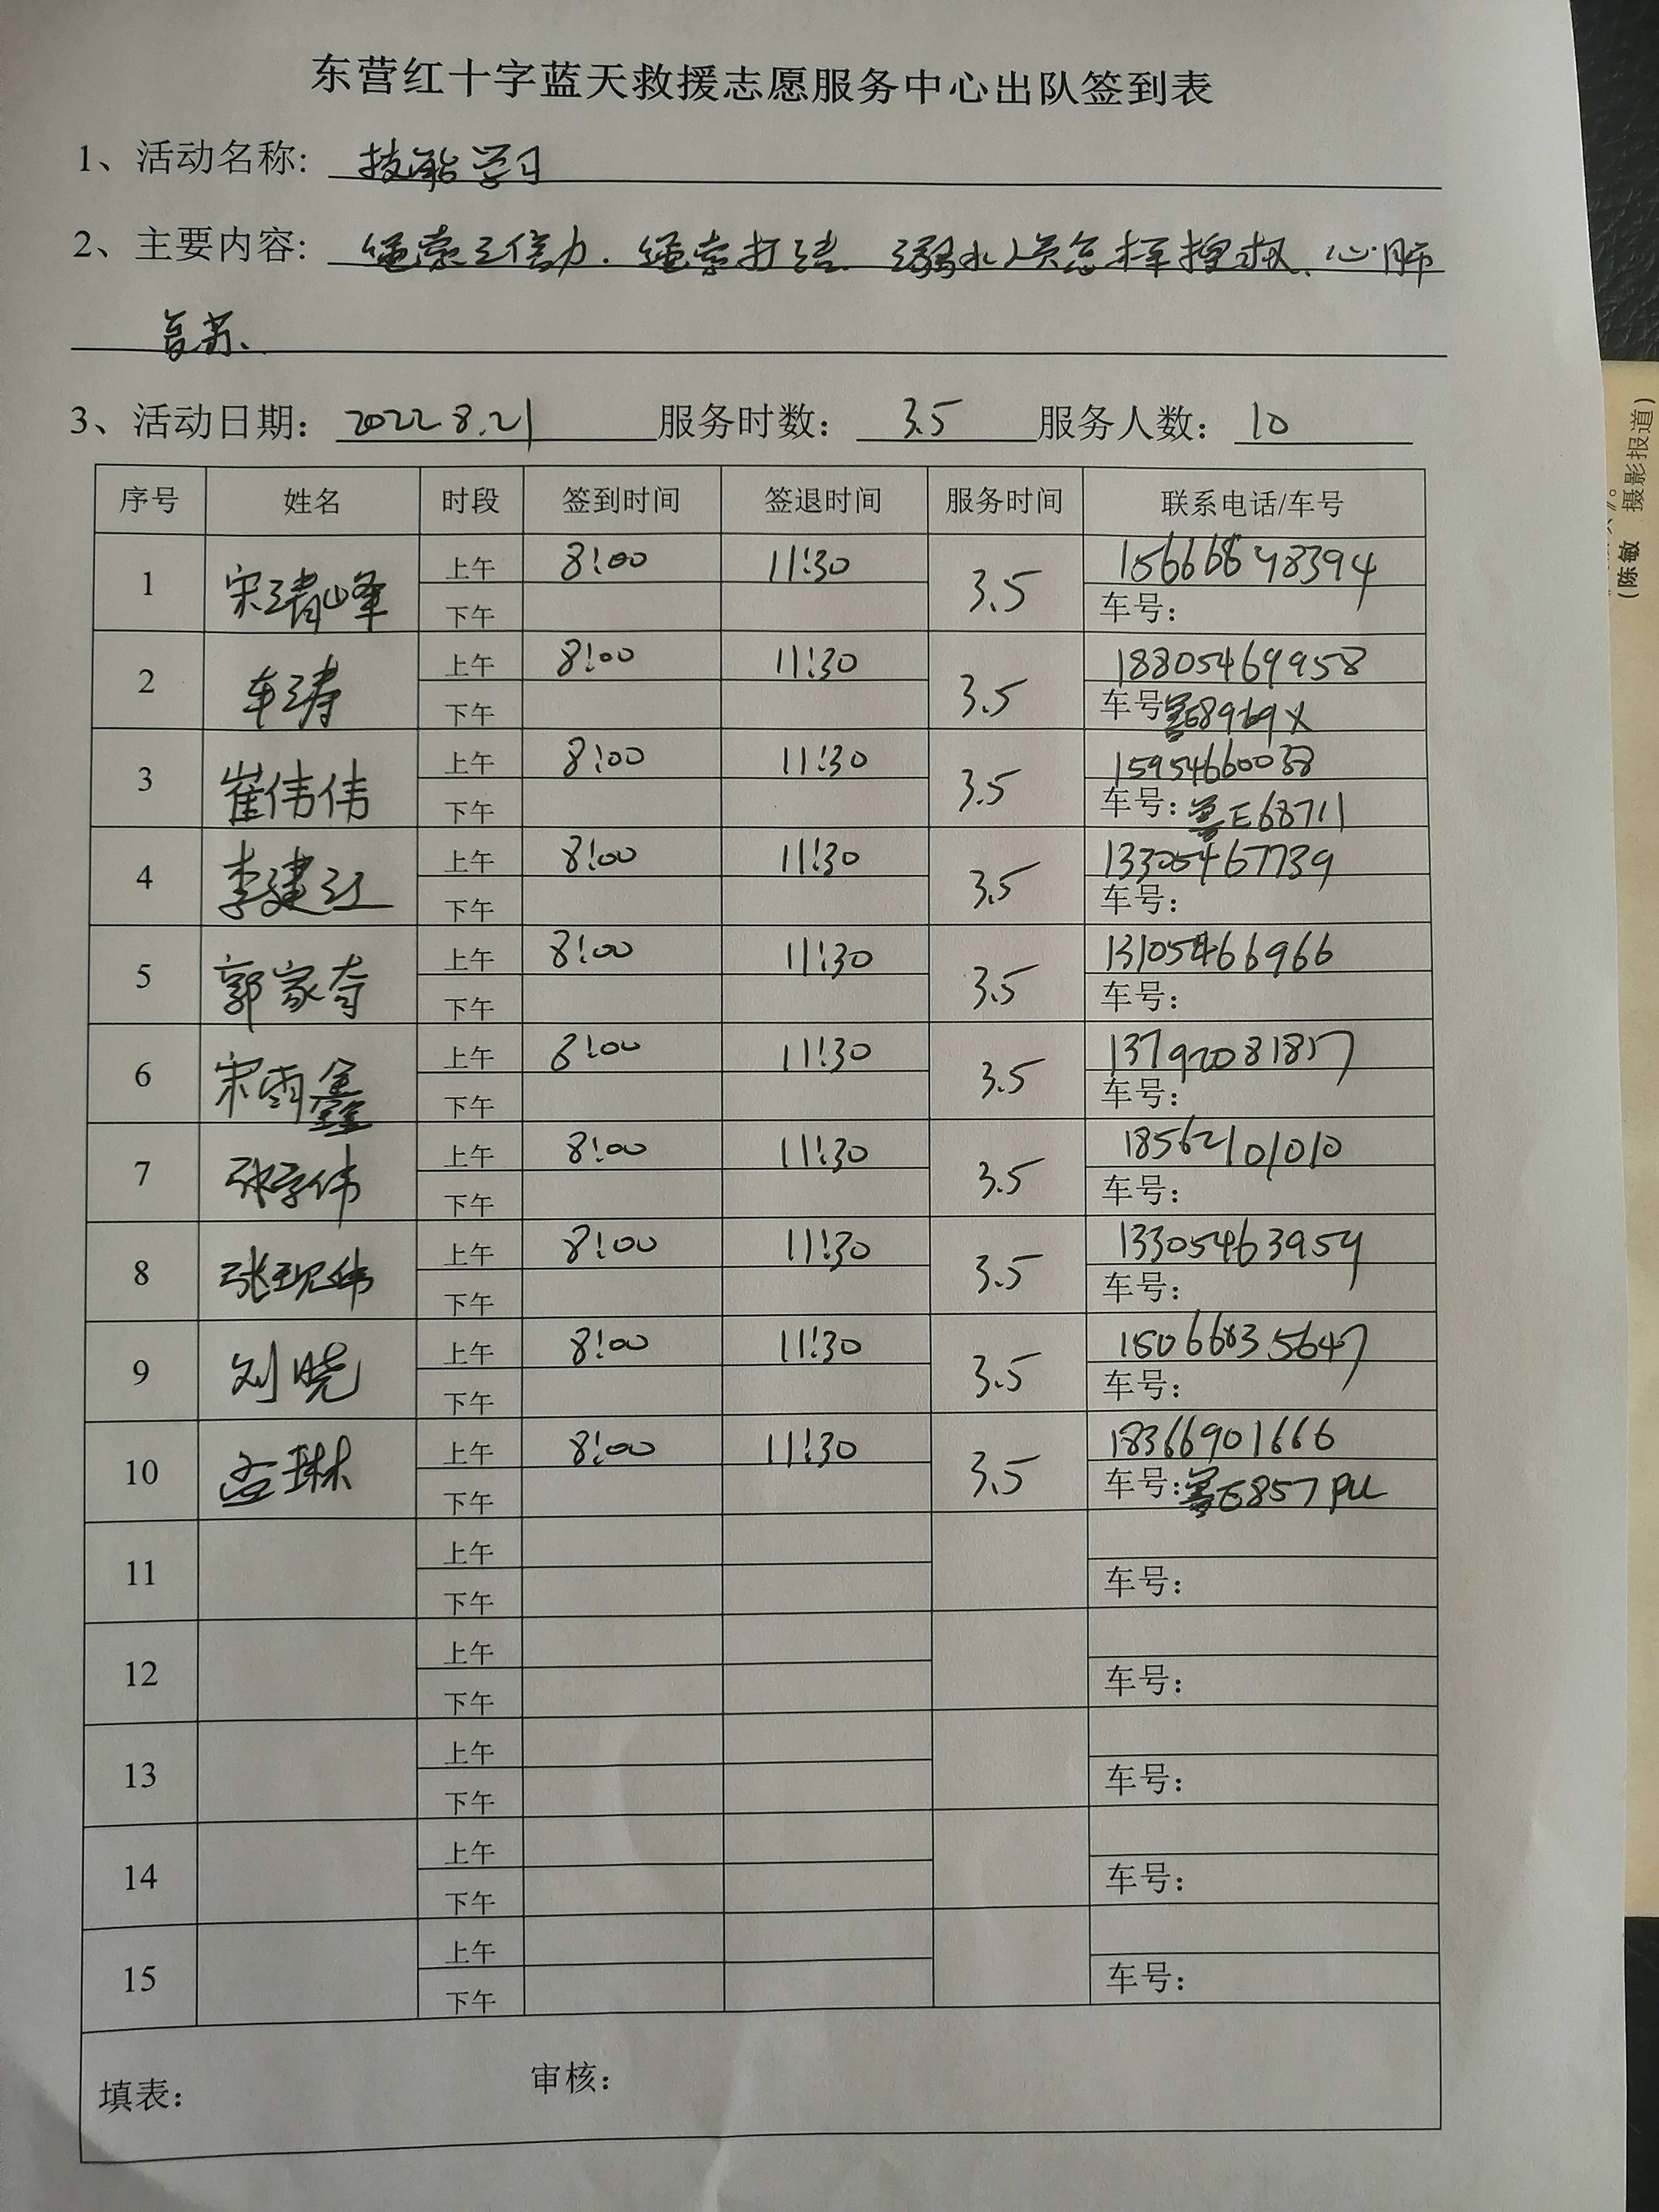 东营红十字蓝天救援志愿服务中心出队签到表
1、活动名称: 技能学习
2、主要内容: 绳索 绳索打结 溺水人员怎样搜救、心肺
复苏、
3、活动日期: 2022 8.21 服务时数: 3.5 服务人数: 10
序号 姓名 时段 签到时间 签退时间 服务时间 联系电话/车号
1 宋清峰 上午 8:00 11:30 3.5 15666848394
下午 车号:
2 车涛 上午 8:00 11:30 3.5 18805469958
下午 车号 鲁E8969X
3 崔伟伟 上午 8:00 11:30 3.5 15954660038
下午 车号: 鲁E68711
4 李建江 上午 8:00 11:30 3.5 13305467739
下午 车号:
5 郭家奇 上午 8:00 11:30 3.5 13105466966
下午 车号:
6 宋雨鑫 上午 8:00 11:30 3.5 13792081817
下午 车号:
7 张学伟 上午 8:00 11:30 3.5 18562101010
下午 车号:
8 张现伟 上午 8:00 11:30 3.5 13305463954
下午 车号:
9 刘晓 上午 8:00 11:30 3.5 15066835647
下午 车号:
10 孟琳 上午 8:00 11:30 3.5 18366901666
下午 车号: 鲁E857PU
11 上午
下午 车号:
12 上午
下午 车号:
13 上午
下午 车号:
14 上午
下午 车号:
15 上午
下午 车号:
填表: 审核:
(陈敏 摄影报道)